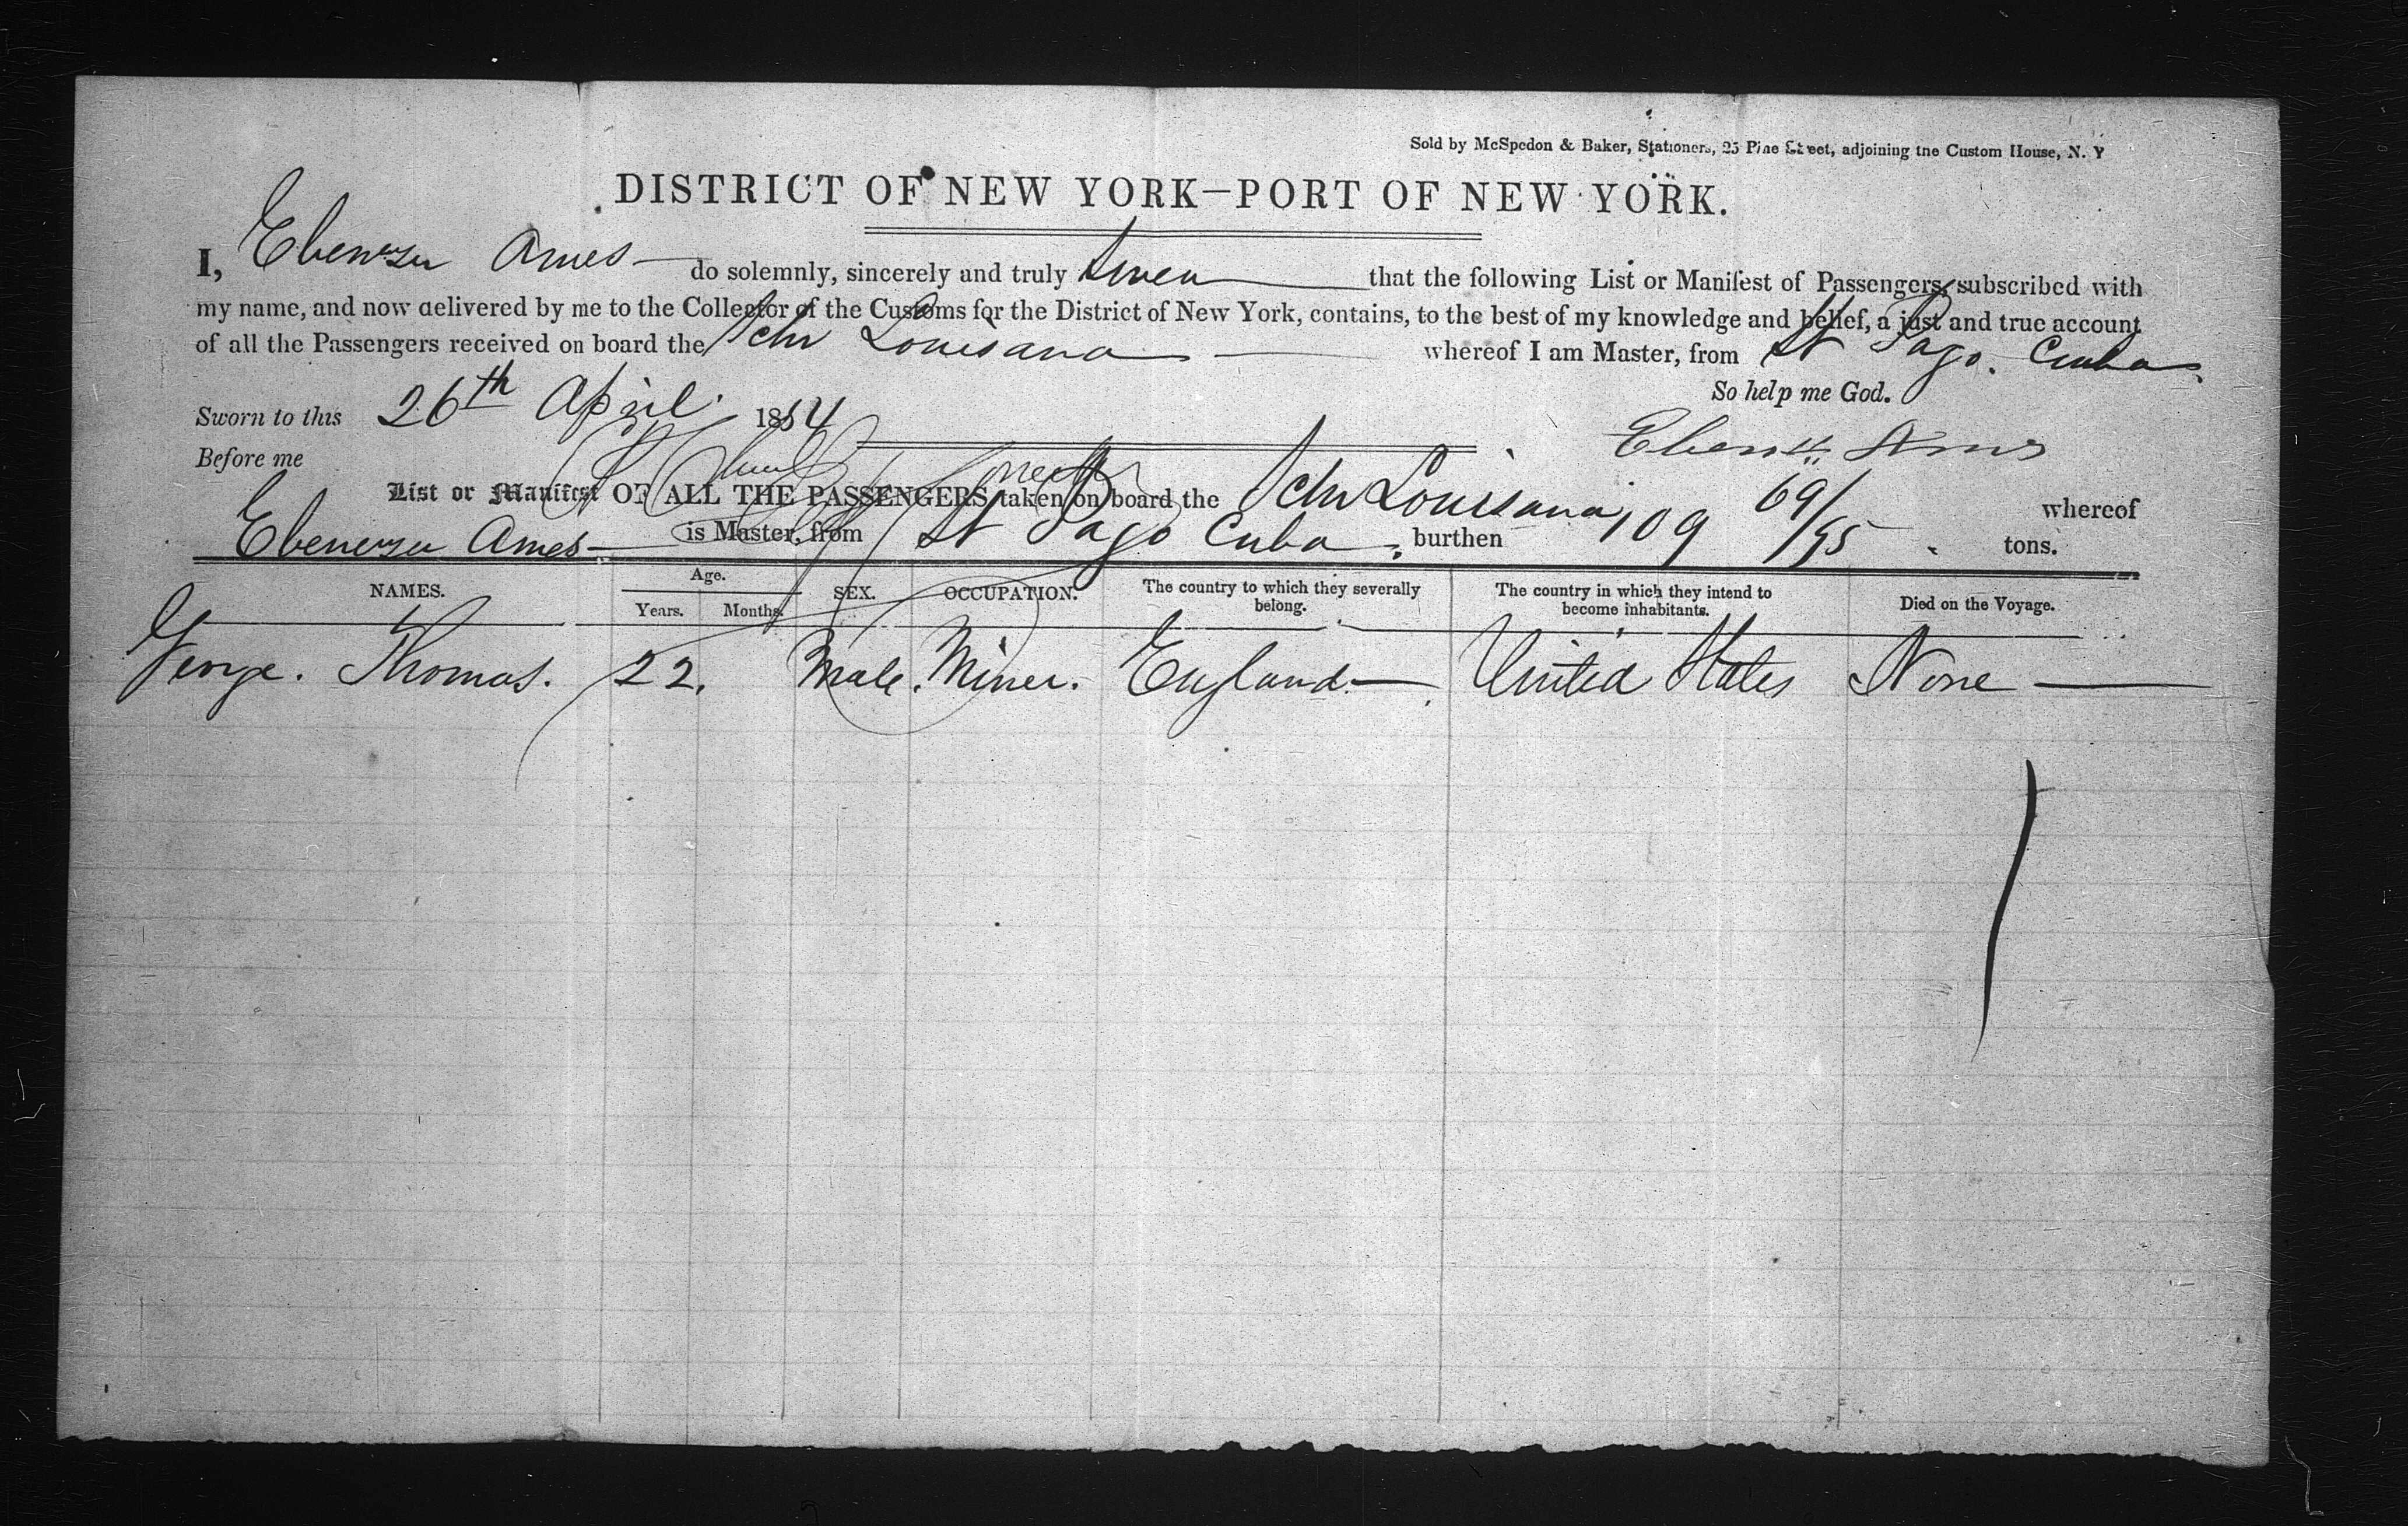 Sold by McSpedon & Baker, Stationers, 25 Pine Street, adjoining the Custom House, N. Y
DISTRICT OF NEW YORK—PORT OF NEW YORK.
I, Ebenezer Ames — do solemnly, sincerely and truly swear that the following List or Manifest of Passengers, subscribed with
my name, and now delivered by me to the Collector of the Customs for the District of New York, contains, to the best of my knowledge and belief, a just and true account
of all the Passengers received on board the Schr Louisana — whereof I am Master, from St Iago. Cuba
So help me God.
Sworn to this 26th April. 1854
Ebenr Ames
Before me
List or Manifest OF ALL THE PASSENGERS taken on board the Schr Louisana whereof
Ebenezer Ames — is Master, from St Iago Cuba, burthen 109 69/95 tons.
NAMES. Age. Years. Months. SEX. OCCUPATION. The country to which they severally belong. The country in which they intend to become inhabitants. Died on the Voyage.
George. Thomas. 22. Male. Miner. England — United States None —